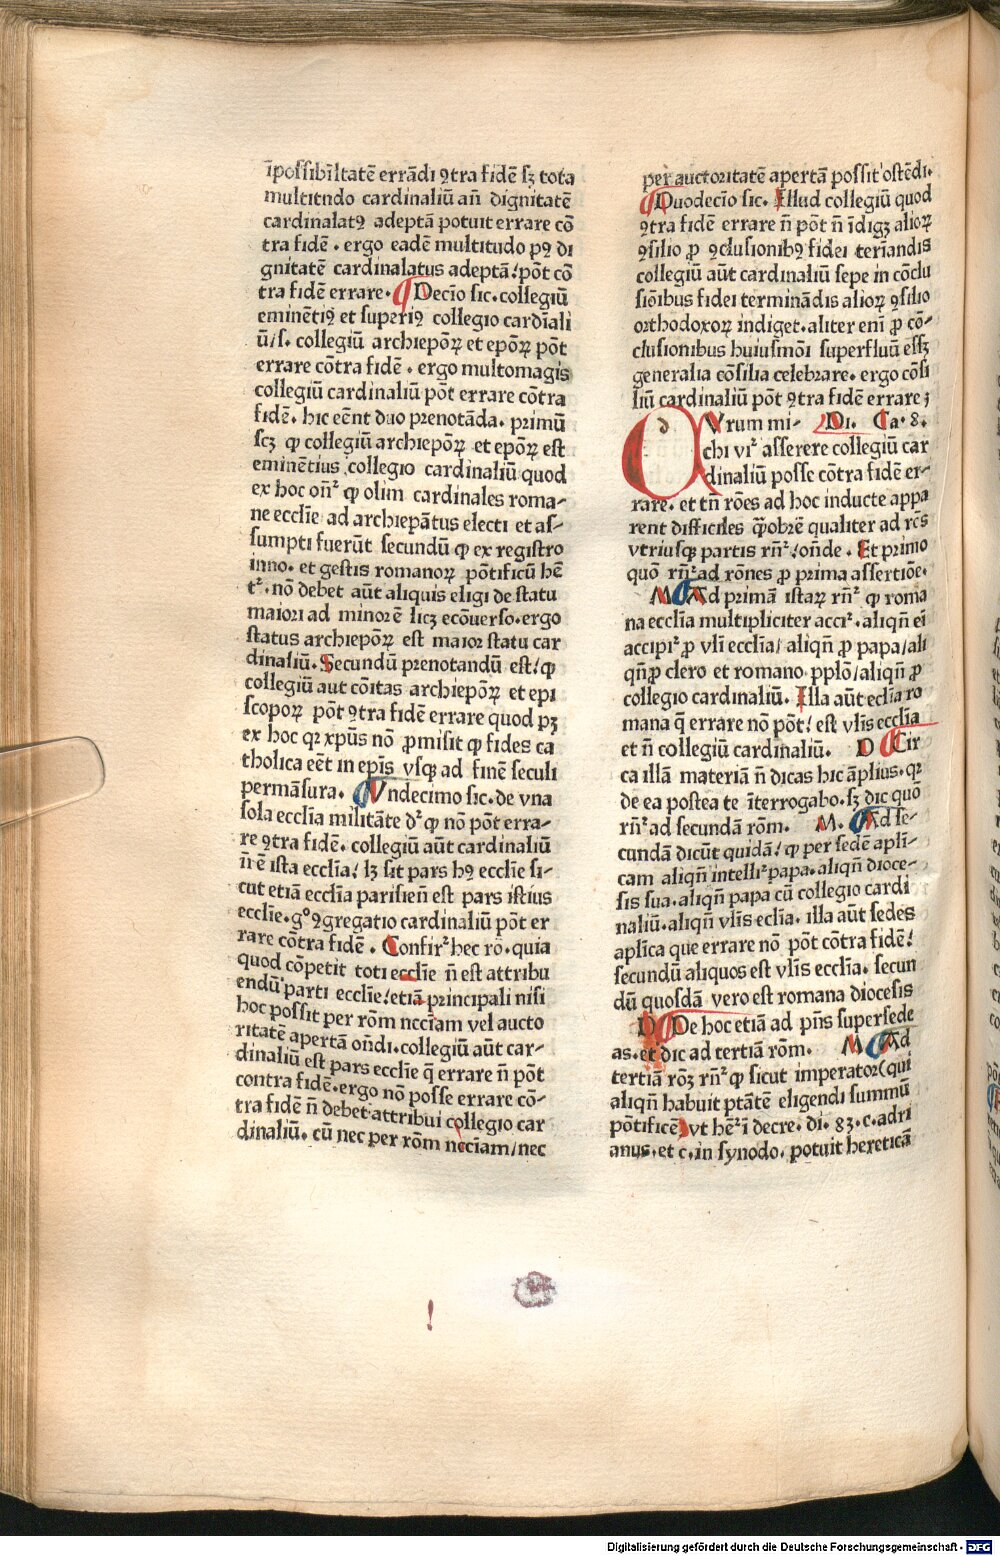 īpossibīltatē errādi ꝯtra fidē sꝫ tota
multitudo cardinaliū añ dignitatē
cardinalatꝰ adeptā potuit errare cō
tra fidē . ergo eadē multitudo pꝰ di
gnitatē cardinalatus adeptā / pōt cō
tra fidē errare. Decīo sic. collegiū
eminētiꝰ et superiꝰ collegio cardīali
ū / s. collegiū archiepōꝝ et epōꝝ pōt
errare cōtra fidē . ergo multomagis
collegiū cardinaliū pōt errare cōtra
fidē. hic eēnt duo prenotāda. primū
scꝫ ꝙ collegiū archiepōꝝ et epōꝝ est
eminētius collegio cardinaliū quod
ex hoc on̄r ꝙ olim cardinales roma-
ne ecclīe ad archiepātus electi et as-
sumpti fuerūt secundū ꝙ ex registro
inno. et gestis romanoꝝ pōtificū hē
tr. nō debet aūt aliquis eligi de statu
maiori ad minorē licꝫ ecōuerso. ergo
status archiepōꝝ est maior statu car
dinaliū. Secundū prenotandū est / ꝙ
collegiū aut cōitas archiepōꝝ et epi
scopoꝝ pōt ꝯtra fidē errare quod pꝫ
ex hoc qꝛ xpūs nō ꝓmisit ꝙ fides ca
tholica eēt in epīs vsqꝫ ad finē seculi
permāsura. Undecimo sic. de vna
sola ecclīa militāte dr ꝙ nō pōt erra-
re ꝯtra fidē. collegiū aūt cardinaliū
n̄ ē ista ecclīa / lꝫ sit pars hꝰ ecclīe si-
cut etiā ecclīa parisien̄ est pars istius
ecclīe. go ꝯgregatio cardinaliū pōt er
rare cōtra fidē . Confirr hec rō. quia
quod cōpetit toti ecclīe n̄ est attribu
endū parti ecclīe / etiā principali nisi
hoc possit per rōm nccīam vel aucto
ritatē apertā on̄di. collegiū aūt car-
dinaliū est pars ecclīe q̄ errare n̄ pōt
contra fidē. ergo nō posse errare cō-
tra fidē n̄ debet attribui collegio car
dinaliū. cū nec per rōm nccīam / nec
per auctoritatē apertā possit ostēdi.
Duodecīo sic. Illud collegiū quod
ꝯtra fidē errare n̄ pōt n̄ īdigꝫ alioꝝ
ꝯsilio ꝓ ꝯclusionibꝰ fidei terīandis
collegiū aūt cardinaliū sepe in cōclu
siōibus fidei terminādis alioꝝ ꝯsilio
orthodoxoꝝ indiget. aliter enī ꝓ cō-
clusionibus huiusmōi superfluū essꝫ
generalia cōsilia celebrare. ergo cōsi
liū cardinaliū pōt ꝯtra fidē errare ;
Vrum mi- Di. Ca. 8.
chi vir asserere collegiū car
dinaliū posse cōtra fidē er-
rare. et tn̄ rōes ad hoc inducte appa
rent difficiles q̄obrē qualiter ad rōes
vtriusqꝫ partis rn̄r / on̄de . Et primo
quō rn̄r ad rōnes ꝓ prima assertiōe.
M. Ad primā istaꝝ rn̄r ꝙ roma
na ecclīa multipliciter accir. aliqn̄ eī
accipir ꝓ vlī ecclīa / aliqn̄ ꝓ papa / ali
qn̄ ꝓ clero et romano pplō / aliqn̄ ꝓ
collegio cardinaliū. Illa aūt eclīa ro
mana q̄ errare nō pōt / est vlīs ecclīa
et n̄ collegiū cardinaliū. D Cir
ca illā materiā n̄ dicas hic āplius. qꝛ
de ea postea te īterrogabo. sꝫ dic quō
rn̄r ad secundā rōm. M. Ad se-
cundā dicūt quidā / ꝙ per sedē apli-
cam aliqn̄ intellir papa. aliqn̄ dioce-
sis sua. aliqn̄ papa cū collegio cardi
naliū. aliqn̄ vlīs eclīa. illa aūt sedes
aplīca que errare nō pōt cōtra fidē /
secundū aliquos est vlīs ecclīa. secun
dū quosdā vero est romana diocesis
D De hoc etiā ad pn̄s supersede
as. et dic ad tertiā rōm. M. Ad
tertiā rōꝫ rn̄r ꝙ sicut imperator (qui
aliqn̄ habuit ptātē eligendi summū
pōtificē vt hēr ī decre. di. 83. c. adri
anus. et c. in synodo. potuit hereticā
Digitalisierung gefördert durch die Deutsche Forschungsgemeinschaft - DFG